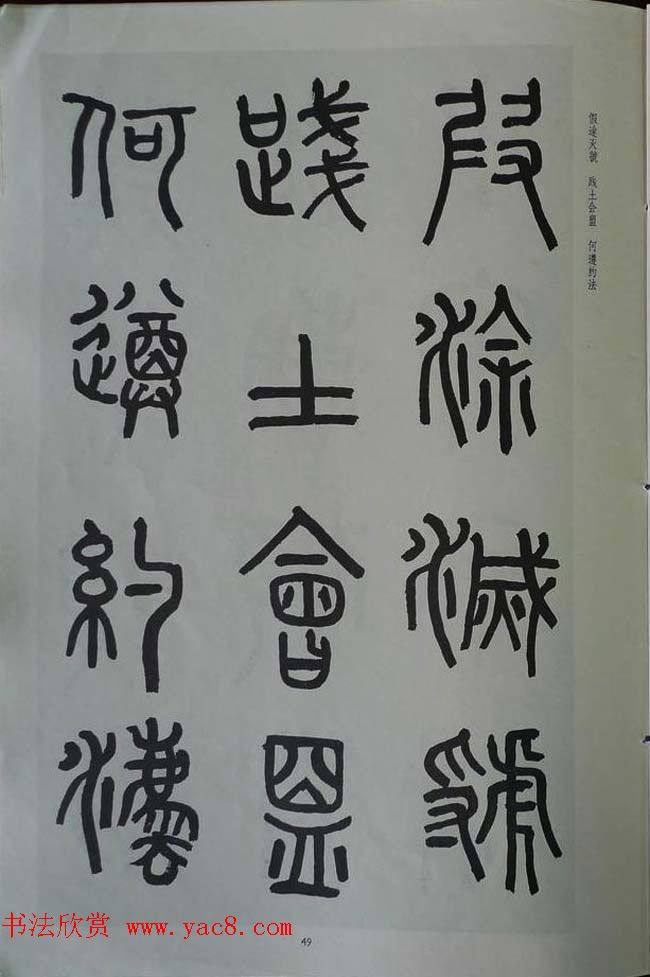 假途灭虢 践土会盟 何遵约法
叚涂滅虢
踐土會盟
何遵約灋
书法欣赏 www.yac8.com
49